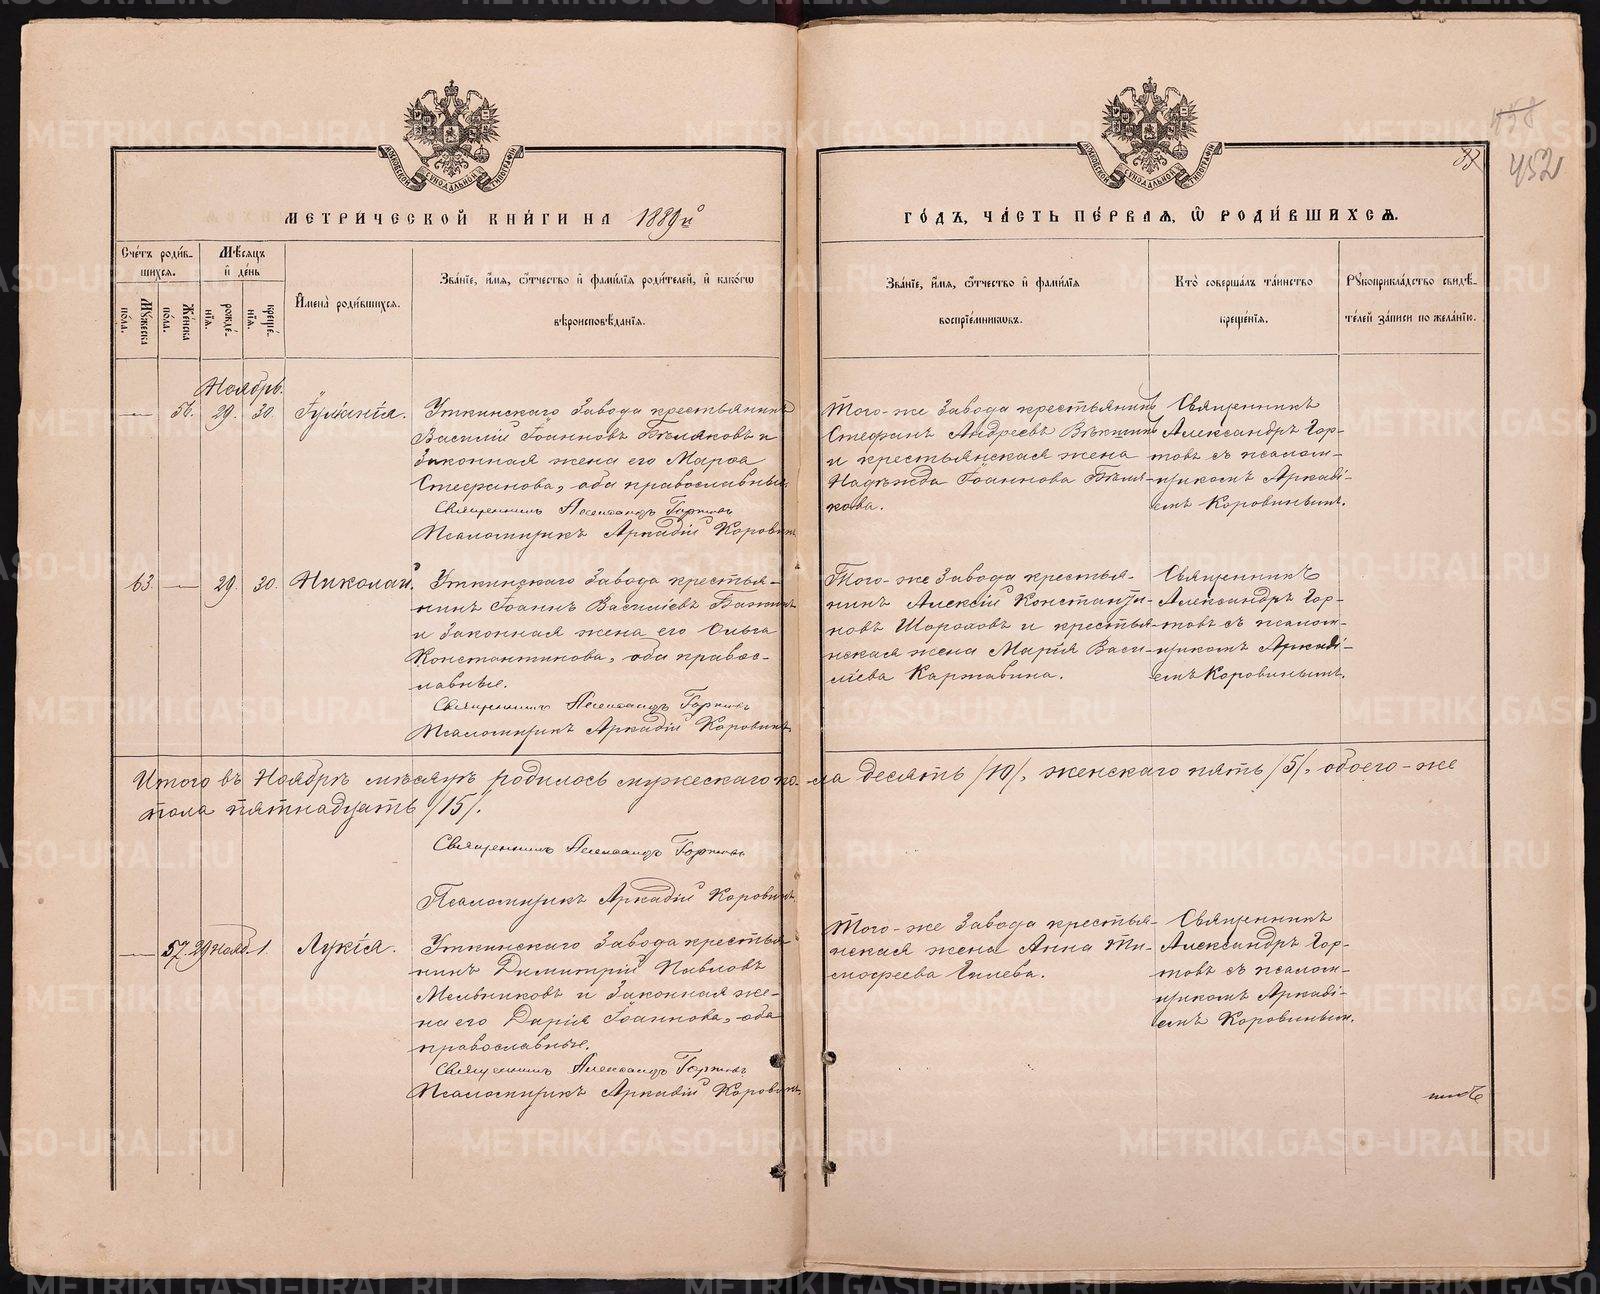 МЕТРИ́ЧЕСКОЙ КНИ́ГИ НА 1889й
ГО́ДЪ, ЧА́СТЬ ПЕ́РВАЯ, Ѽ РОДИ́ВШИХСЯ.
452
МОСКОВСКОЙ СУНОДАЛЬНОЙ ТИПОГРАФІИ
МОСКОВСКОЙ СУНОДАЛЬНОЙ ТИПОГРАФІИ
Сче́тъ роди́в-
шихся.
Мꙋжеска
пола.
Же́нска
пола.
Мѣсяцъ
и҆ де́нь
рожде́-
нїя.
креще́-
нїя.
И҆мена̀ роди́вшихся.
Зва́нїе, и҆́мя, ѻ҆́тчество и҆ фами́лїя роди́телей, и҆ како́гѡ
вѣроисповѣ́данїя.
Зва́нїе, и҆́мя, ѻ҆́тчество и҆ фами́лїя
воспрїе́мникѡвъ.
Кто̀ соверша́лъ та́инство
креще́нїя.
Рꙋкоприкла́дство свидѣ́-
телей за́писи по жела́нїю.
Ноябрь.
56. 29. 30. Іуліанія.
Уткинскаго Завода крестьянинъ
Василій Іоанновъ Бѣляковъ и
законная жена его Марѳа
Стефанова, оба православные
Священникъ Александръ Гортовъ
Псаломщикъ Аркадій Коровинъ
Того-же Завода крестьянинъ
Стефанъ Андреевъ
и крестьянская жена
Надѣжда Іоаннова Бѣля-
кова.
Священникъ
Александръ Гор-
товъ съ псалом-
щикомъ Аркаді-
емъ Коровинымъ.
63 — 29. 30. Николай.
Уткинскаго Завода крестья-
нинъ Іоаннъ Василіевъ Бажинъ
и законная жена его Ольга
Константинова, оба правос-
лавные.
Священникъ Александръ Гортовъ
Псаломщикъ Аркадій Коровинъ
Того-же Завода крестья-
нинъ Алексій Константи-
новъ Шороховъ и крестья-
нская жена Марія Васи-
ліева Каржавина.
Священникъ
Александръ Гор-
товъ съ псалом-
щикомъ Аркаді-
емъ Коровинымъ.
Итого въ Ноябрѣ мѣсяцѣ родилось мужескаго по-ла десять /10/, женскаго пять /5/, обоего-же
пола пятнадцать /15/.
Священникъ Александръ Гортовъ
Псаломщикъ Аркадій Коровинъ
57. 29 Нояб. 1. Лукія.
Уткинскаго Завода крестья
нинъ Димитрій Павловъ
Мельниковъ и законная же-
на его Дарія Іоаннова, оба
православные.
Священникъ Александръ Гортовъ
Псаломщикъ Аркадій Коровинъ
Того-же Завода крестья-
нская жена Анна Ти-
мофеева Гилева.
Священникъ
Александръ Гор-
товъ съ псалом-
щикомъ Аркаді-
емъ Коровинымъ.
METRIKI.GASO-URAL.RU